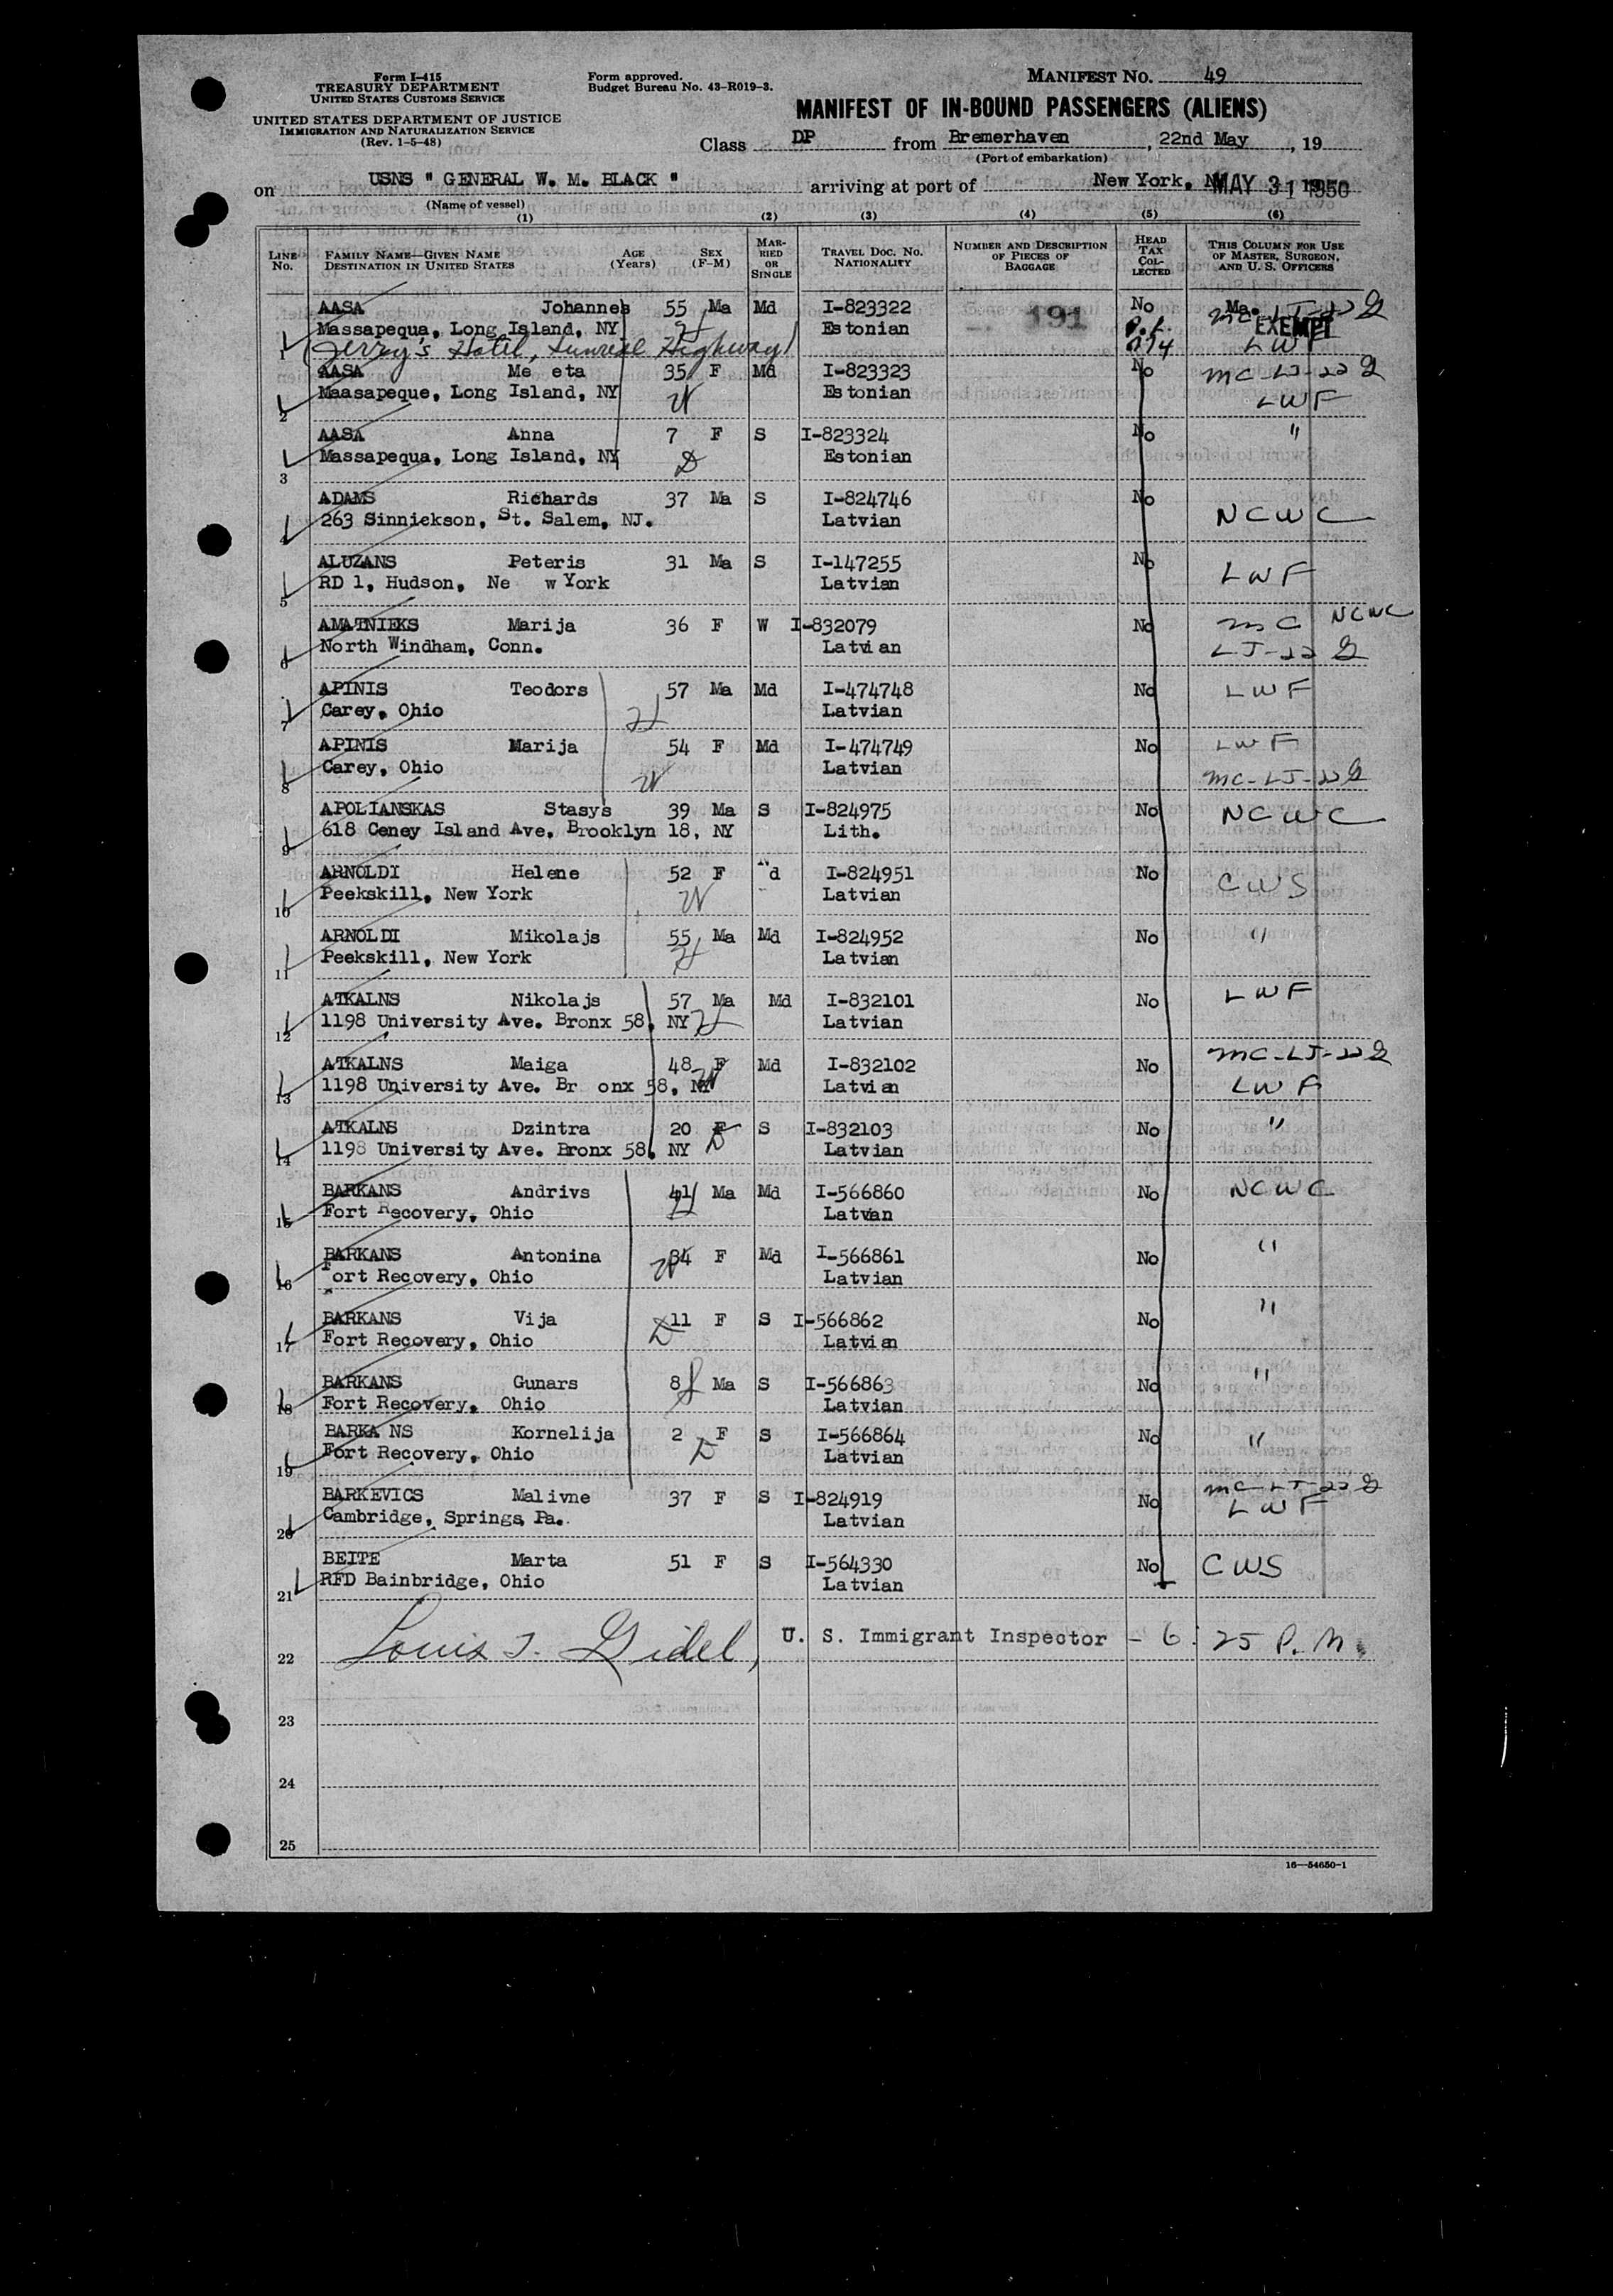 Form I-415
TREASURY DEPARTMENT
UNITED STATES CUSTOMS SERVICE
UNITED STATES DEPARTMENT OF JUSTICE
IMMIGRATION AND NATURALIZATION SERVICE
(Rev. 1-5-48)
Form approved.
Budget Bureau No. 43-R019-3.
MANIFEST NO. 49
MANIFEST OF IN-BOUND PASSENGERS (ALIENS)
Class DP from Bremerhaven, 22nd May, 19
(Port of embarkation)
on USNS " GENERAL W. M. BLACK " arriving at port of New York, MAY 31 1950
(Name of vessel)
(1) (2) (3) (4) (5) (6)
LINE No. FAMILY NAME—GIVEN NAME DESTINATION IN UNITED STATES AGE (Years) SEX (F-M) MARRIED OR SINGLE TRAVEL DOC. NO. NATIONALITY NUMBER AND DESCRIPTION OF PIECES OF BAGGAGE HEAD TAX COLLECTED THIS COLUMN FOR USE OF MASTER, SURGEON, AND U. S. OFFICERS
AASA Johannes 55 Ma Md I-823322 191 No
Massapequa, Long Island, NY H Estonian EXEMPT
1 (Jerry's Hotel, Sunrise Highway) LWF
AASA Me eta 35 F Md I-823323 No MC-LJ-22 G
2 Maasapeque, Long Island, NY W Estonian LWF
AASA Anna 7 F S I-823324 No "
3 Massapequa, Long Island, NY D Estonian
ADAMS Richards 37 Ma S I-824746 No NCWC
4 263 Sinniekson, St. Salem, NJ. Latvian
ALUZANS Peteris 31 Ma S I-147255 No LWF
5 RD 1, Hudson, Ne w York Latvian
AMATNIEKS Marija 36 F W I-832079 No MC NCWC
6 North Windham, Conn. Latvian LJ-22 G
APINIS Teodors 57 Ma Md I-474748 No LWF
7 Carey, Ohio H Latvian
APINIS Marija 54 F Md I-474749 No LWF
8 Carey, Ohio W Latvian MC-LJ-22 G
APOLIANSKAS Stasys 39 Ma S I-824975 No NCWC
9 618 Ceney Island Ave, Brooklyn 18, NY Lith.
ARNOLDI Helene 52 F d I-824951 No CWS
10 Peekskill, New York W Latvian
ARNOLDI Mikolajs 55 Ma Md I-824952 No "
11 Peekskill, New York H Latvian
ATKALNS Nikolajs 57 Ma Md I-832101 No LWF
12 1198 University Ave. Bronx 58, NY H Latvian
ATKALNS Maiga 48 F Md I-832102 No MC-LJ-22 G
13 1198 University Ave. Br onx 58, NY W Latvian LWF
ATKALNS Dzintra 20 F S I-832103 No "
14 1198 University Ave. Bronx 58, NY D Latvian
BARKANS Andrivs 41 Ma Md I-566860 No NCWC
15 Fort Recovery, Ohio H Latvan
BARKANS Antonina 34 F Md I-566861 No "
16 Fort Recovery, Ohio W Latvian
BARKANS Vija 11 F S I-566862 No "
17 Fort Recovery, Ohio D Latvian
BARKANS Gunars 8 Ma S I-566863 No "
18 Fort Recovery, Ohio S Latvian
BARKA NS Kornelija 2 F S I-566864 No "
19 Fort Recovery, Ohio D Latvian
BARKEVICS Malivne 37 F S I-824919 No MC-LJ-22 G
20 Cambridge, Springs, Pa. Latvian LWF
BEITE Marta 51 F S I-564330 No CWS
21 RFD Bainbridge, Ohio Latvian
22 Louis J. Gidel, U. S. Immigrant Inspector - 6:25 P.M.
23
24
25
16—54650-1